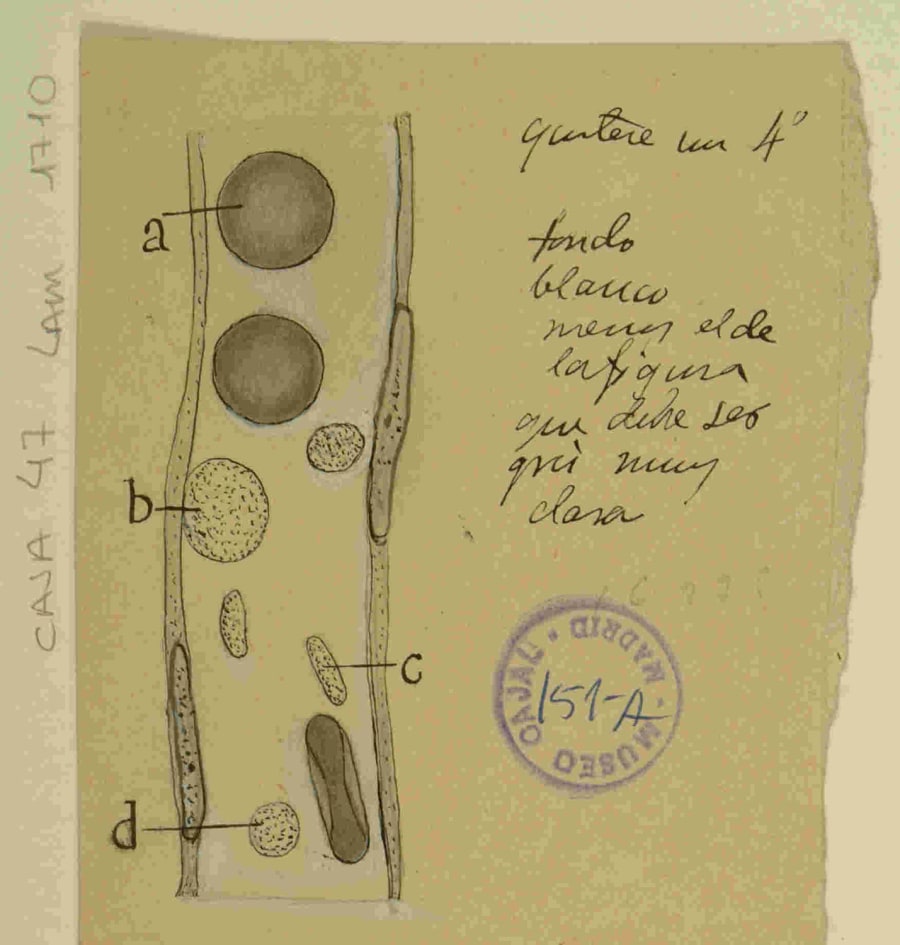 CAJA 47 LAM 1710
a
b
c
d
quitese un 4º
fondo
blanco
menos el de
la figura
que debe ser
gris muy
clara
MUSEO CAJAL · MADRID ·
151-A